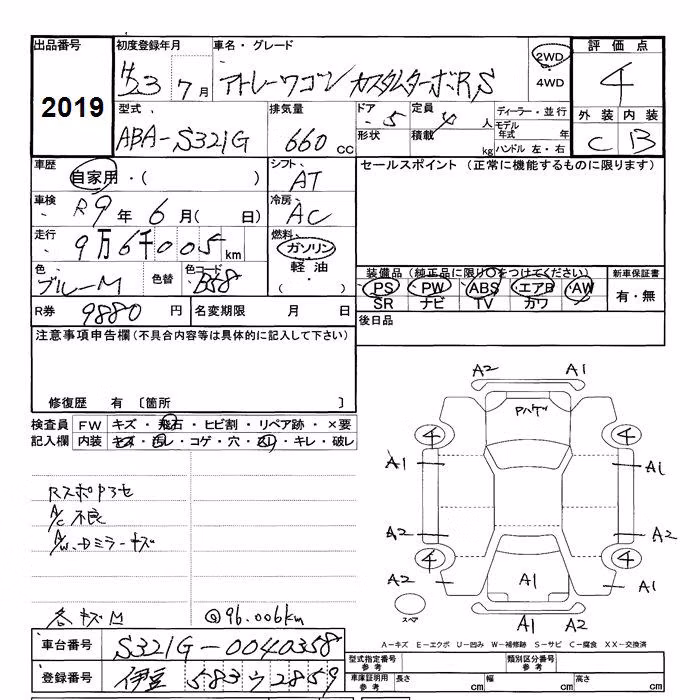 出品番号
2019
初度登録年月
H23 7月
車名・グレード
アトレーワゴン カスタムターボRS
2WD
4WD
評価点
4
外装 内装
C B
型式
ABA-S321G
排気量
660 CC
ドア
5
形状
定員
4 人
積載
kg
ディーラー・並行
モデル年式 年
ハンドル 左・右
車歴
自家用・( )
シフト
AT
セールスポイント (正常に機能するものに限ります)
車検
R9年 6月( 日)
冷房
AC
走行
9万6千005km
燃料
ガソリン
軽油
( )
色
ブルーM
色替
色コード
B58
装備品(純正品に限り○をつけてください)
PS PW ABS エアB AW
SR ナビ TV カワ
新車保証書
有・無
R券 9880 円
名変期限 月 日
後日品
注意事項申告欄(不具合内容等は具体的に記入して下さい)
修復歴 有 〔箇所 〕
検査員記入欄
FW キズ・飛石・ヒビ割・リペア跡・×要
内装 キズ・汚レ・コゲ・穴・スレ・キレ・破レ
A2 A1
Pハゲ
4 4
A1 A1
A2 A2
4 4
A2 A1 A1
A1 A2
スペア
Rスポアセ
A/C不良
A/W、Dミラーキズ
各キズM
@96.006km
A－キズ E－エクボ U－凹み W－補修跡 S－サビ C－腐食 XX－交換済
車台番号 S321G-0040358
登録番号 伊豆 583 ウ 2859
型式指定番号 参考
類別区分番号 参考
車庫証明用 参考
長さ cm 幅 cm 高さ cm